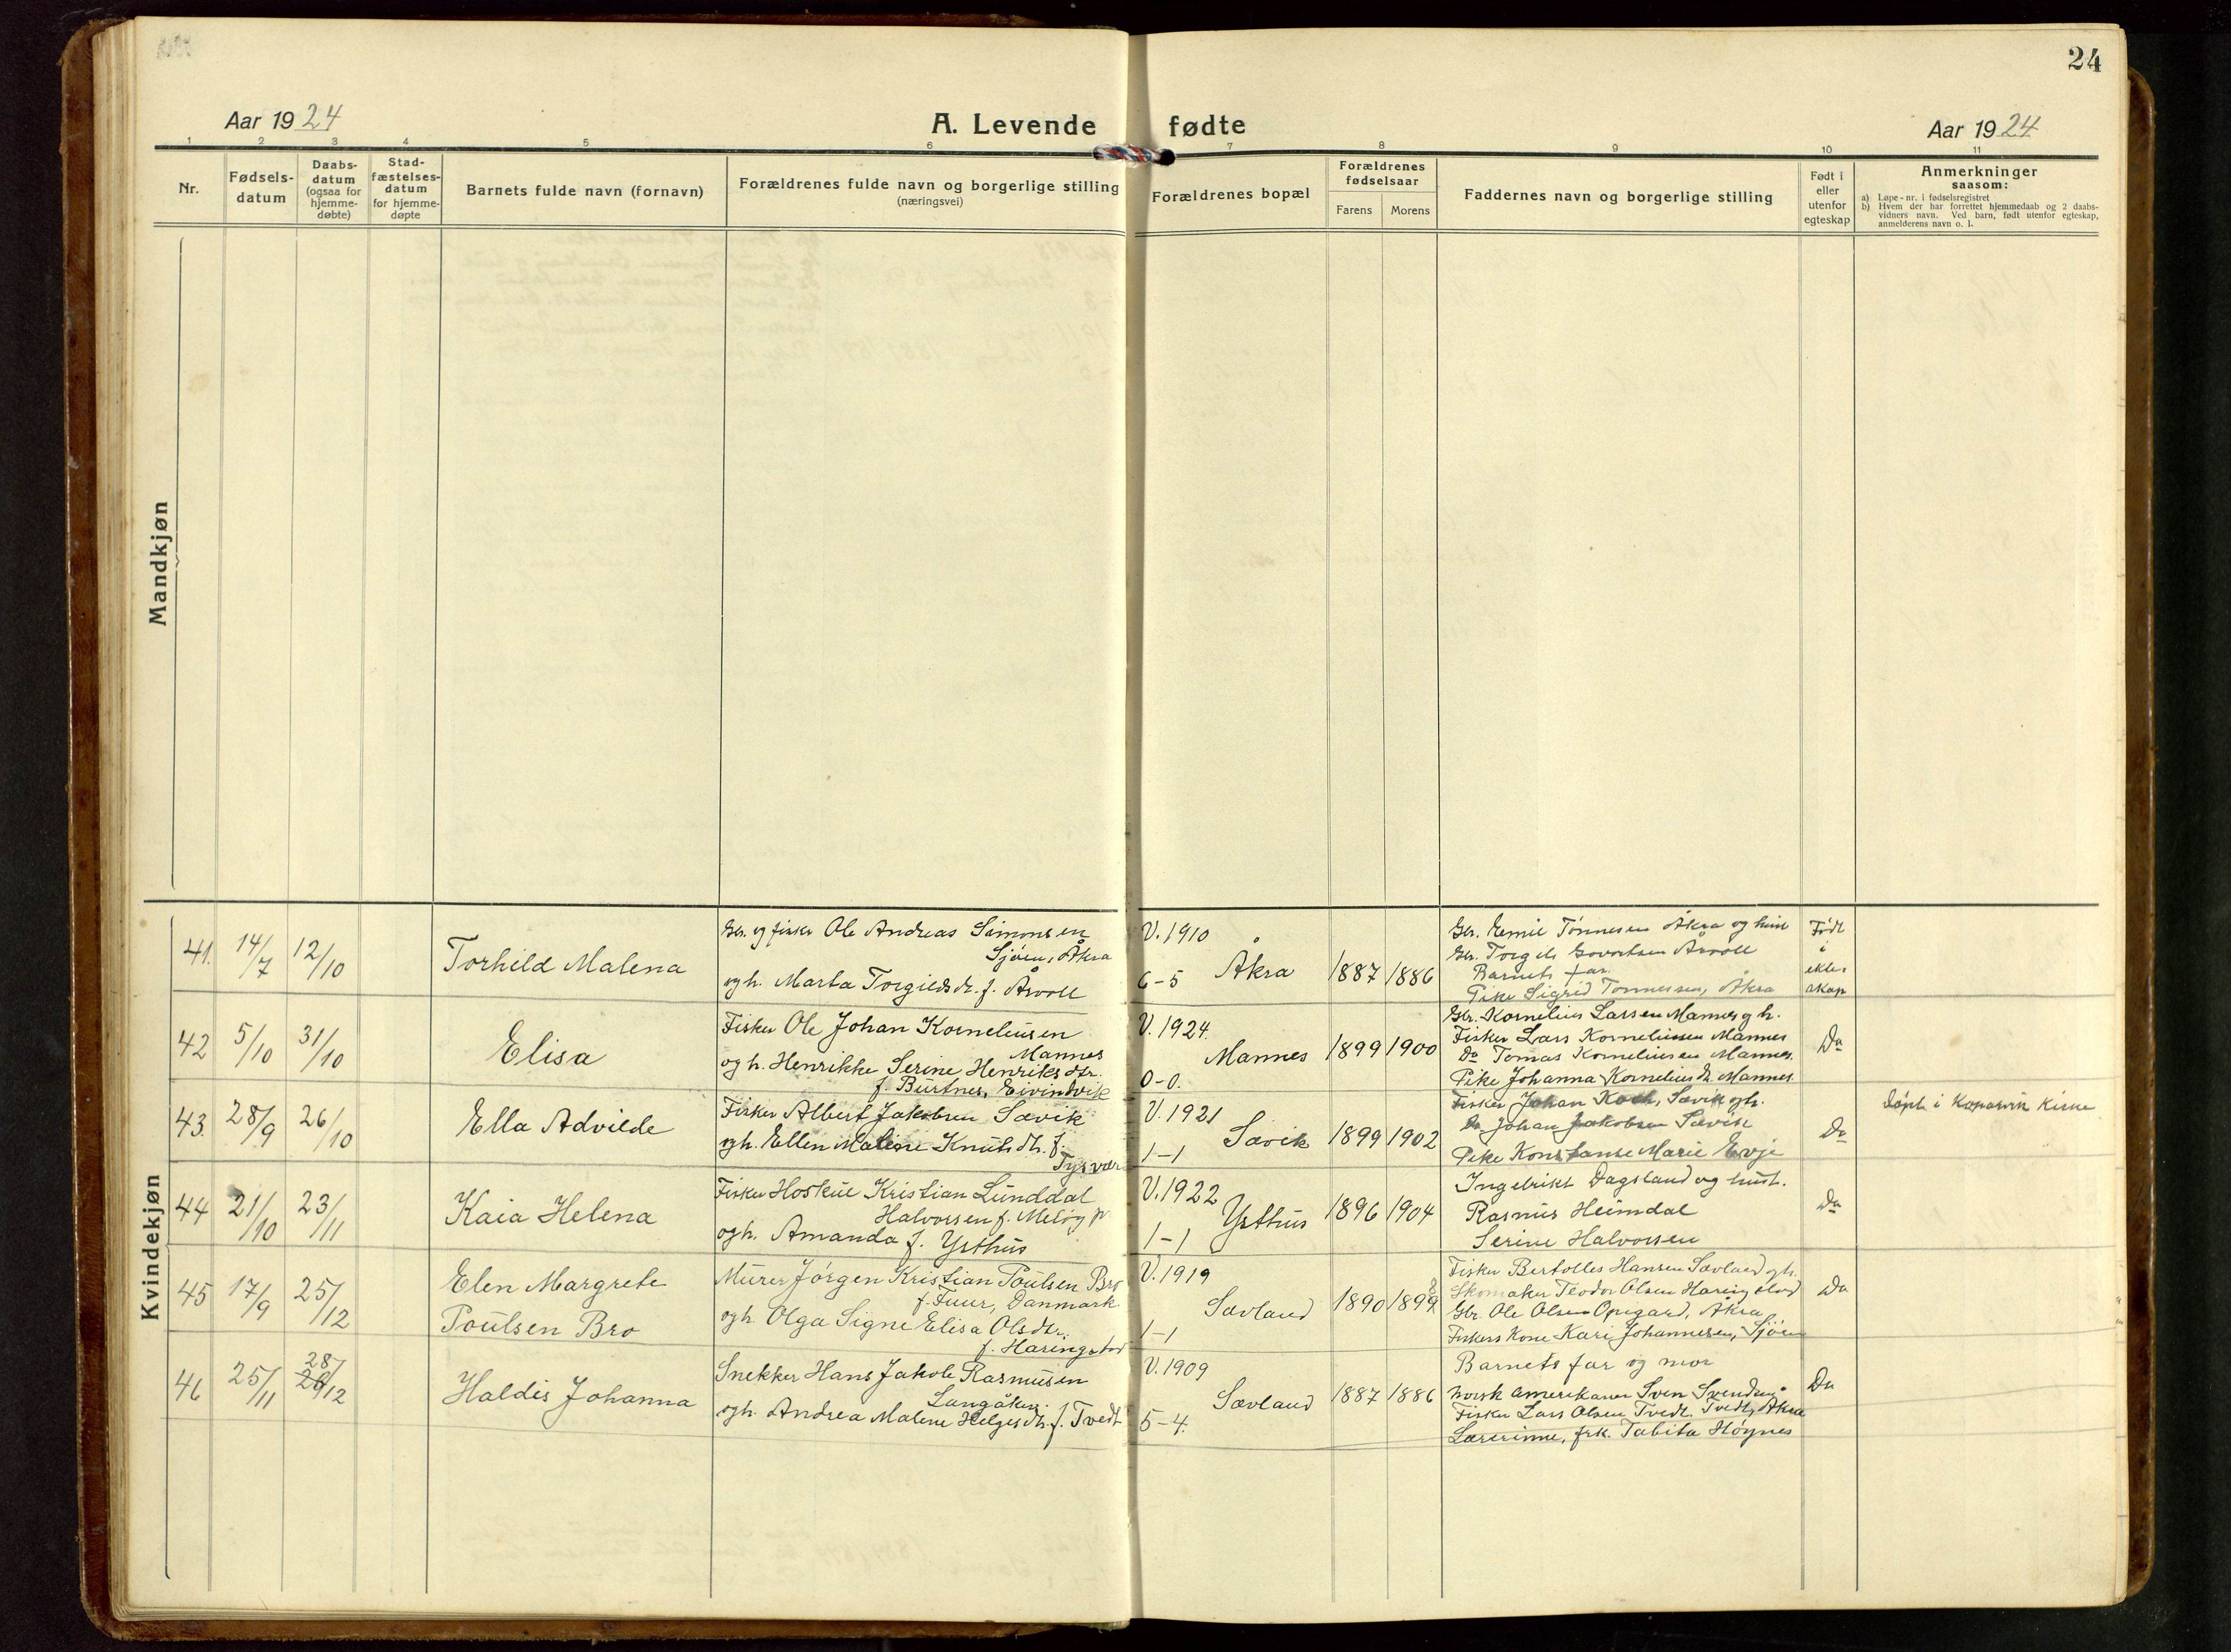 24
Aar 1924
A. Levende fødte
Aar 1924
1 2 3 4 5 6 7 8 9 10 11
Nr.
Fødsels-
datum
Daabs-
datum
(ogsaa for
hjemme-
døbte)
Stad-
fæstelses-
datum
for hjemme-
døpte
Barnets fulde navn (fornavn)
Forældrenes fulde navn og borgerlige stilling
(næringsvei)
Forældrenes bopæl
Forældrenes
fødselsaar
Farens Morens
Faddernes navn og borgerlige stilling
Født i
eller
utenfor
egteskap
Anmerkninger
saasom:
a) Løpe-nr. i fødselsregistret
b) Hvem der har forrettet hjemmedaab og 2 daabs-
vidners navn. Ved barn, født utenfor egteskap,
anmelderens navn o. l.
Mandkjøn
Kvindekjøn
41. 14/7 12/10
Torhild Malena
Gbr. og fisker Ole Andreas Simonsen
Sjøen, Åkra
og h. Marta Torgildsdr. f. Årvoll
V. 1910
6-5
Åkra
1887 1886
Gbr. Emil Tønnesen Åkra og hust
Gbr. Torgils Govertsen Årvoll
Barnets far.
Pike Sigrid Tonnessen, Åkra
Født
i
ekte-
skap
42 5/10 31/10
Elisa
Fisker Ole Johan Korneliusen
Mannes
og h. Henrikke Serine Henriksdtr.
f. Burtnes, Eivindvik
V. 1924.
0-0.
Mannes
1899 1900
Gbr. Kornelius Larsen Mannes og h.
Fisker Lars Korneliussen Mannes
Do Tomas Korneliusen Mannes.
Pike Johanna Korneliusdr. Mannes.
Do
43. 28/9 26/10
Ella Advilde
Fisker Albert Jakobsen Sævik
og h. Ellen Malene Knutsdtr. f.
Tysvær
V. 1921
1-1
Sævik
1899 1902
Fisker Johan Koch, Sævik og h.
Do Johan Jakobsen Sævik
Pike Konstanse Marie Evje
Do
Døpt i Kopervik Kirke
44 21/10 23/11
Kaia Helena
Fisker Hoskul Kristian Lunddal
Halvorsen f. Meløy p.
og h. Amanda f. Ysthus
V. 1922
1-1
Ysthus
1896 1904
Ingebrikt Dagsland og hust.
Rasmus Heimdal
Serine Halvorsen
Do
45 17/9 25/12
Elen Margrete
Poulsen Bro
Murer Jørgen Kristian Poulsen Bro
f. Fuur, Danmark.
og h. Olga Signe Elisa Olsdtr.
f. Haringstad
V. 1919
1-1
Sævland
1890 1899
8
Fisker Bertolles Hansen Sævland og h.
Skomaker Teodor Olsen Haringstad
Gbr. Ole Olsen Opegard, Åkra
Fiskers Kone Kari Johannesen, Sjøen
Do
46 25/11 28/12
Haldis Johanna
Snekker Hans Jakob Rasmusen
Langåker.
og h. Andrea Malene Helgesdtr. f. Tvedt
V. 1909
5-4.
Sævland
1887 1886
Barnets far og mor
Norsk amerikaner Sven Svendsen
Tvedt, Åkra
Fisker Lars Olsen Tvedt.
Lærerinne, frk. Tabita Høynes
Do